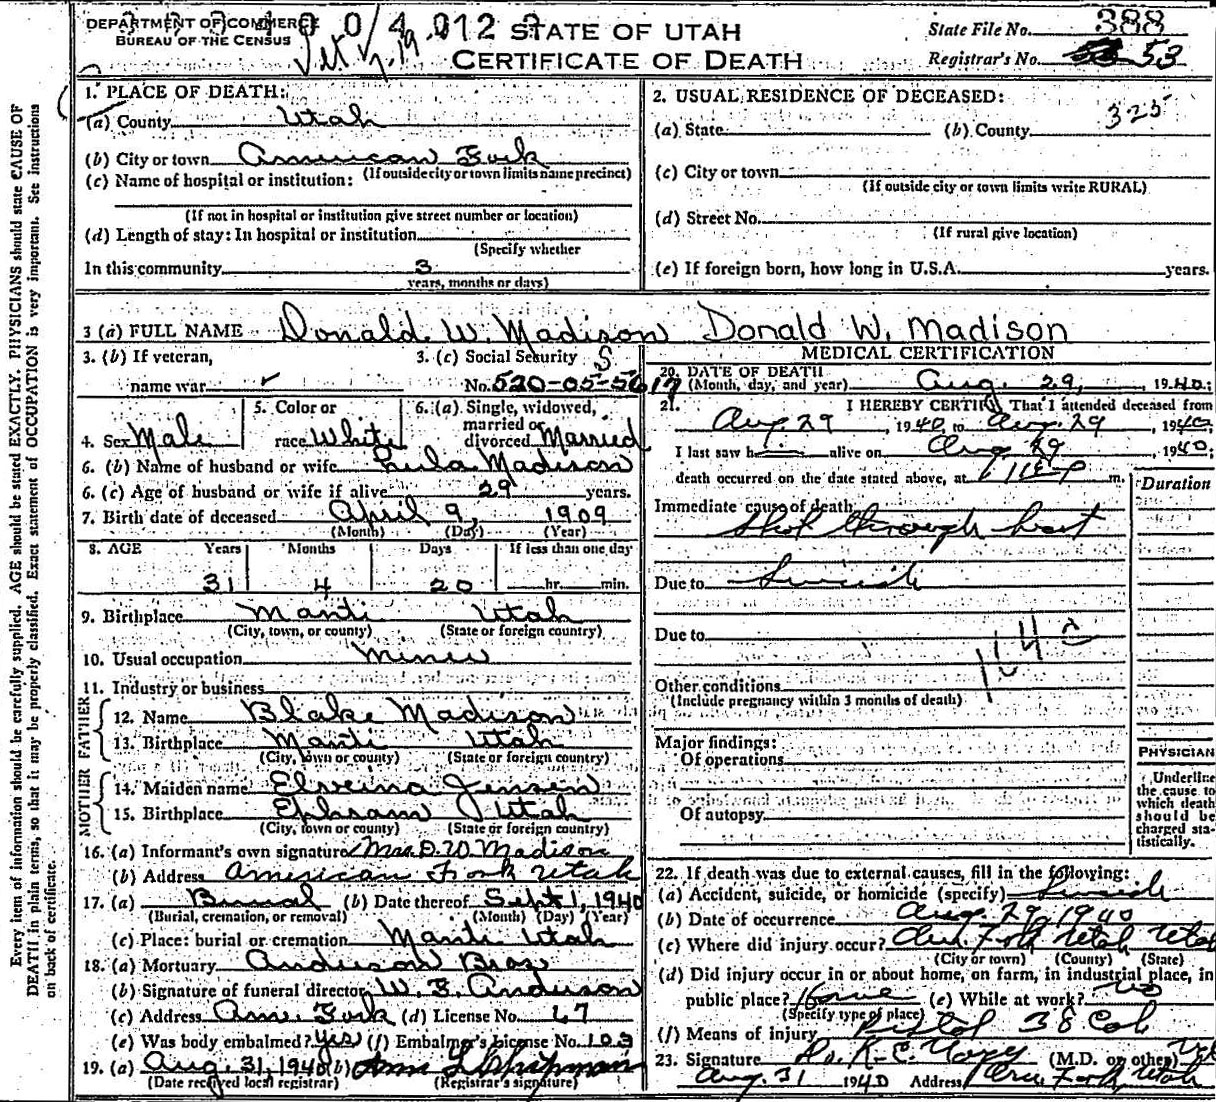 DEPARTMENT OF COMMERCE
BUREAU OF THE CENSUS
STATE OF UTAH
CERTIFICATE OF DEATH
State File No. 388
Registrar's No. 53
Every item of information should be carefully supplied. AGE should be stated EXACTLY. PHYSICIANS should state CAUSE OF
DEATH in plain terms, so that it may be properly classified. Exact statement of OCCUPATION is very important. See instructions
on back of certificate.
1. PLACE OF DEATH:
(a) County Utah
(b) City or town American Fork
(If outside city or town limits name precinct)
(c) Name of hospital or institution:
(If not in hospital or institution give street number or location)
(d) Length of stay: In hospital or institution
(Specify whether
In this community 3
years, months or days)
2. USUAL RESIDENCE OF DECEASED:
325
(a) State (b) County
(c) City or town
(If outside city or town limits write RURAL)
(d) Street No.
(If rural give location)
(e) If foreign born, how long in U.S.A. years.
3 (a) FULL NAME Donald W. Madison Donald W. Madison
3. (b) If veteran,
name war
3. (c) Social Security
No. 520-05-5617
4. Sex Male
5. Color or
race White
6. (a) Single, widowed,
married or
divorced Married
6. (b) Name of husband or wife Lula Madison
6. (c) Age of husband or wife if alive 29 years.
7. Birth date of deceased April 9, 1909
(Month) (Day) (Year)
8. AGE Years Months Days If less than one day
31 4 20 hr. min.
9. Birthplace Manti Utah
(City, town, or county) (State or foreign country)
10. Usual occupation Miner
11. Industry or business
FATHER
12. Name Blake Madison
13. Birthplace Manti Utah
(City, town or county) (State or foreign country)
MOTHER
14. Maiden name Elveina Jensen
15. Birthplace Ephraim Utah
(City, town or county) (State or foreign country)
16. (a) Informant's own signature Mrs. D. W. Madison
(b) Address American Fork Utah
17. (a) Burial (b) Date thereof Sept 1, 1940
(Burial, cremation, or removal) (Month) (Day) (Year)
(c) Place: burial or cremation Manti Utah
18. (a) Mortuary Anderson Bros
(b) Signature of funeral director W. E. Anderson
(c) Address Am. Fork (d) License No. 67
(e) Was body embalmed? Yes (f) Embalmer's License No. 103
19. (a) Aug. 31, 1940 (b)
(Date received local registrar) (Registrar's signature)
MEDICAL CERTIFICATION
20. DATE OF DEATH
(Month, day, and year) Aug. 29, 1940;
21. I HEREBY CERTIFY That I attended deceased from
Aug. 29 1940, to Aug. 29, 1940;
I last saw h alive on Aug 29, 1940;
death occurred on the date stated above, at m.
Duration
Immediate cause of death
Shot through heart
Due to Suicide
Due to
164
Other conditions
(Include pregnancy within 3 months of death)
Major findings:
Of operations
Of autopsy
PHYSICIAN
Underline
the cause to
which death
should be
charged sta-
tistically.
22. If death was due to external causes, fill in the following:
(a) Accident, suicide, or homicide (specify) Suicide
(b) Date of occurrence Aug. 29, 1940
(c) Where did injury occur? Am. Fork Utah Utah
(City or town) (County) (State)
(d) Did injury occur in or about home, on farm, in industrial place, in
public place? Home (e) While at work? no
(Specify type of place)
(f) Means of injury Pistol 38 Col
23. Signature (M.D. or other)
Aug. 31 1940 Address Am. Fork, Utah